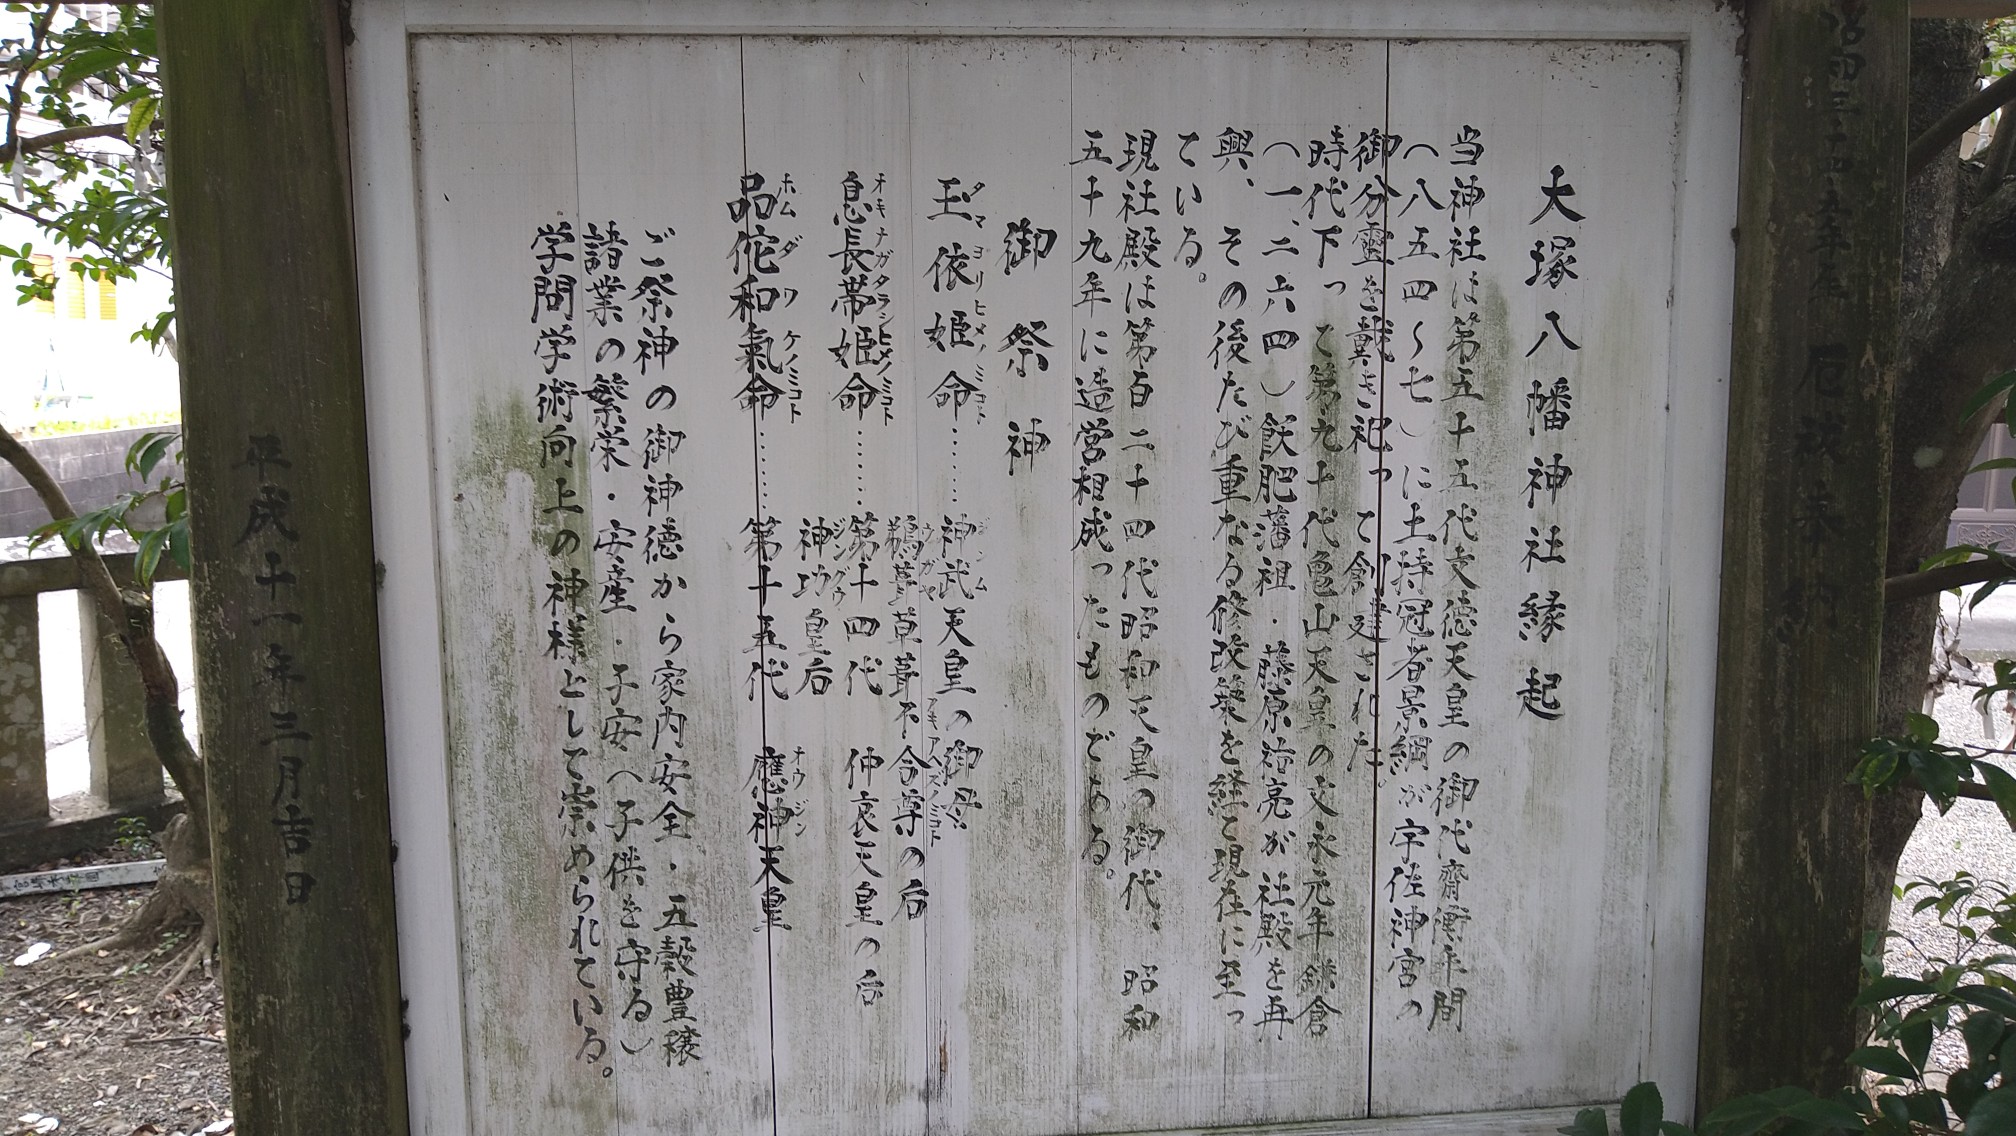 大塚八幡神社縁起
当神社は第五十五代文徳天皇の御代齋衡年間
(八五四〜七)に土持冠者景綱が宇佐神宮の
御分霊を戴き祀って創建された。
時代下って第九十代亀山天皇の文永元年鎌倉
(一、二六四)飫肥藩祖・藤原祐亮が社殿を再
興、その後たび重なる修改築を経て現在に至っ
ている。
現社殿は第百二十四代昭和天皇の御代、昭和
五十九年に造営相成ったものである。
御祭神
玉依姫命……神武天皇の御母
タマヨリヒメノミコト ジンム
鵜葺草葺不合尊の后
ウガヤ アキアヘズノミコト
息長帯姫命……第十四代 仲哀天皇の后
オキナガタラシヒメノミコト
神功皇后
ジングウ
品佗和氣命……第十五代 應神天皇
ホムダワケノミコト オウジン
ご祭神の御神徳から家内安全・五穀豊穣
諸業の繁栄・安産・子安(子供を守る)
学問学術向上の神様として崇められている。
平成十一年三月吉日